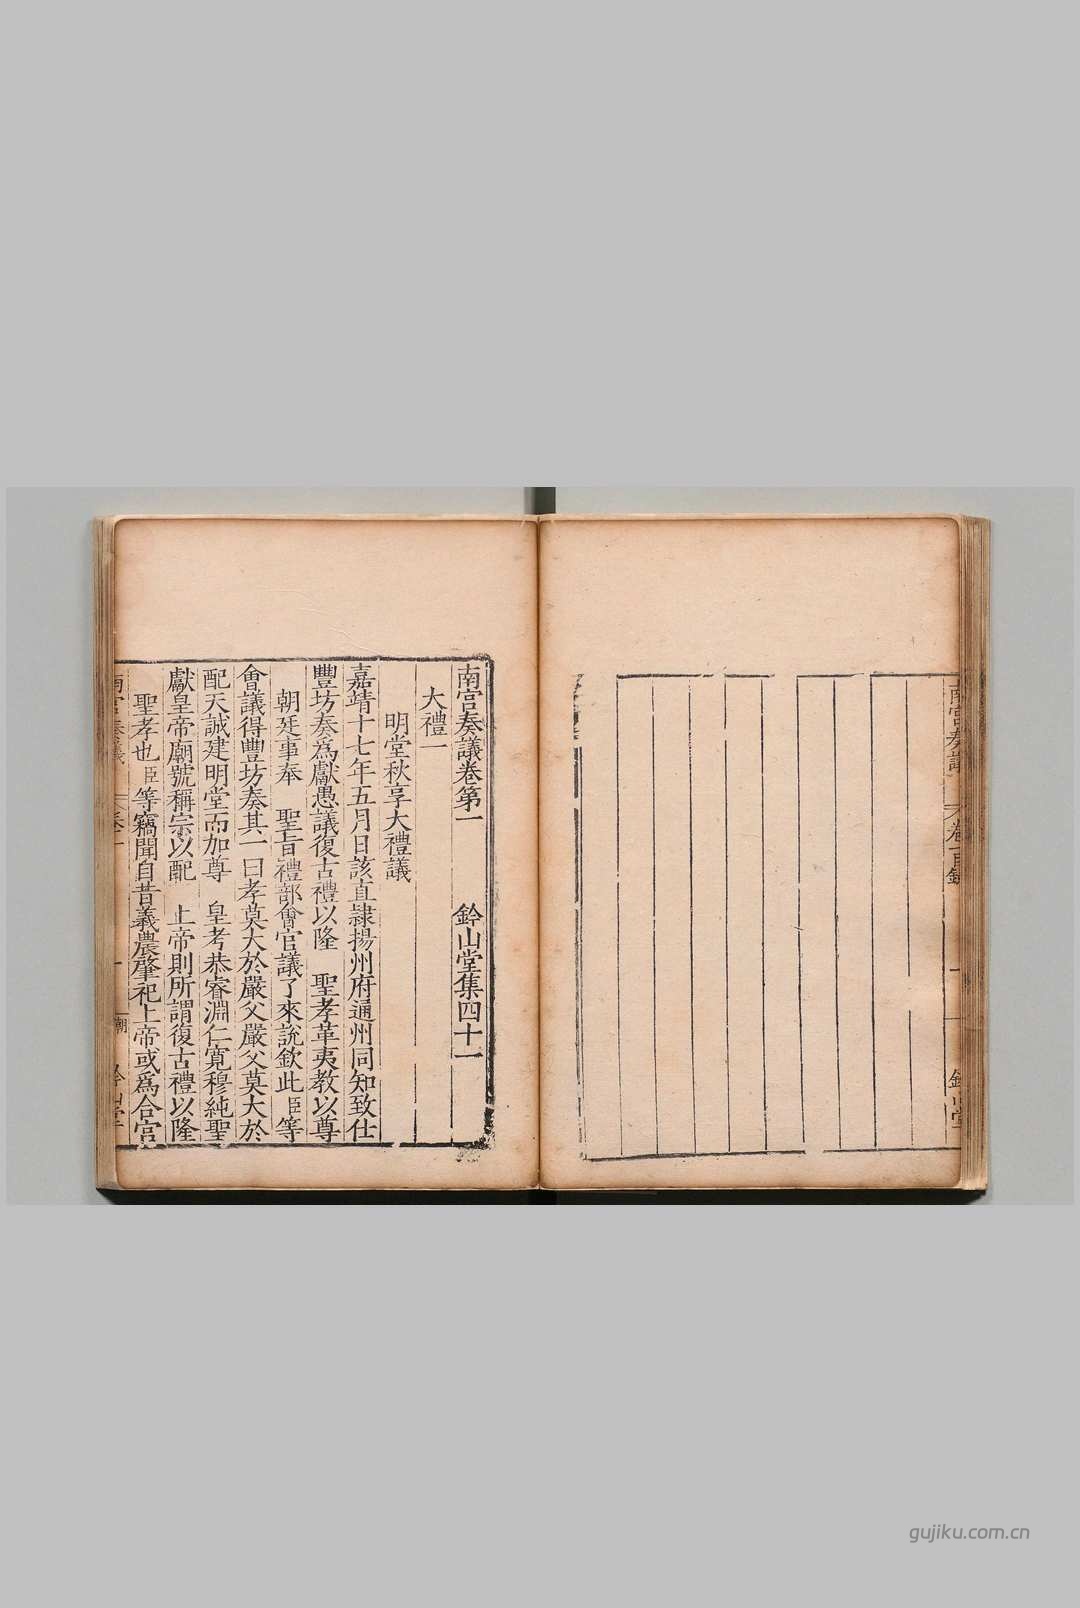 南宮奏議
卷一目錄
鈐山堂
南宮奏議卷第一　鈐山堂集四十一
大禮一
明堂秋享大禮議
嘉靖十七年五月日該直隷揚州府通州同知致仕
豐坊奏爲獻愚議復古禮以隆　聖孝革夷教以尊
朝廷事奉　聖旨禮部會官議了來說欽此臣等
會議得豐坊奏其一曰孝莫大於嚴父嚴父莫大於
配天誠建明堂而加尊　皇考恭睿淵仁寬穆純聖
獻皇帝廟號稱宗以配　上帝則所謂復古禮以隆
聖孝也臣等竊聞自昔羲農肇祀上帝或爲合宮
南宮奏議
卷一
一
gujiku.com.cn